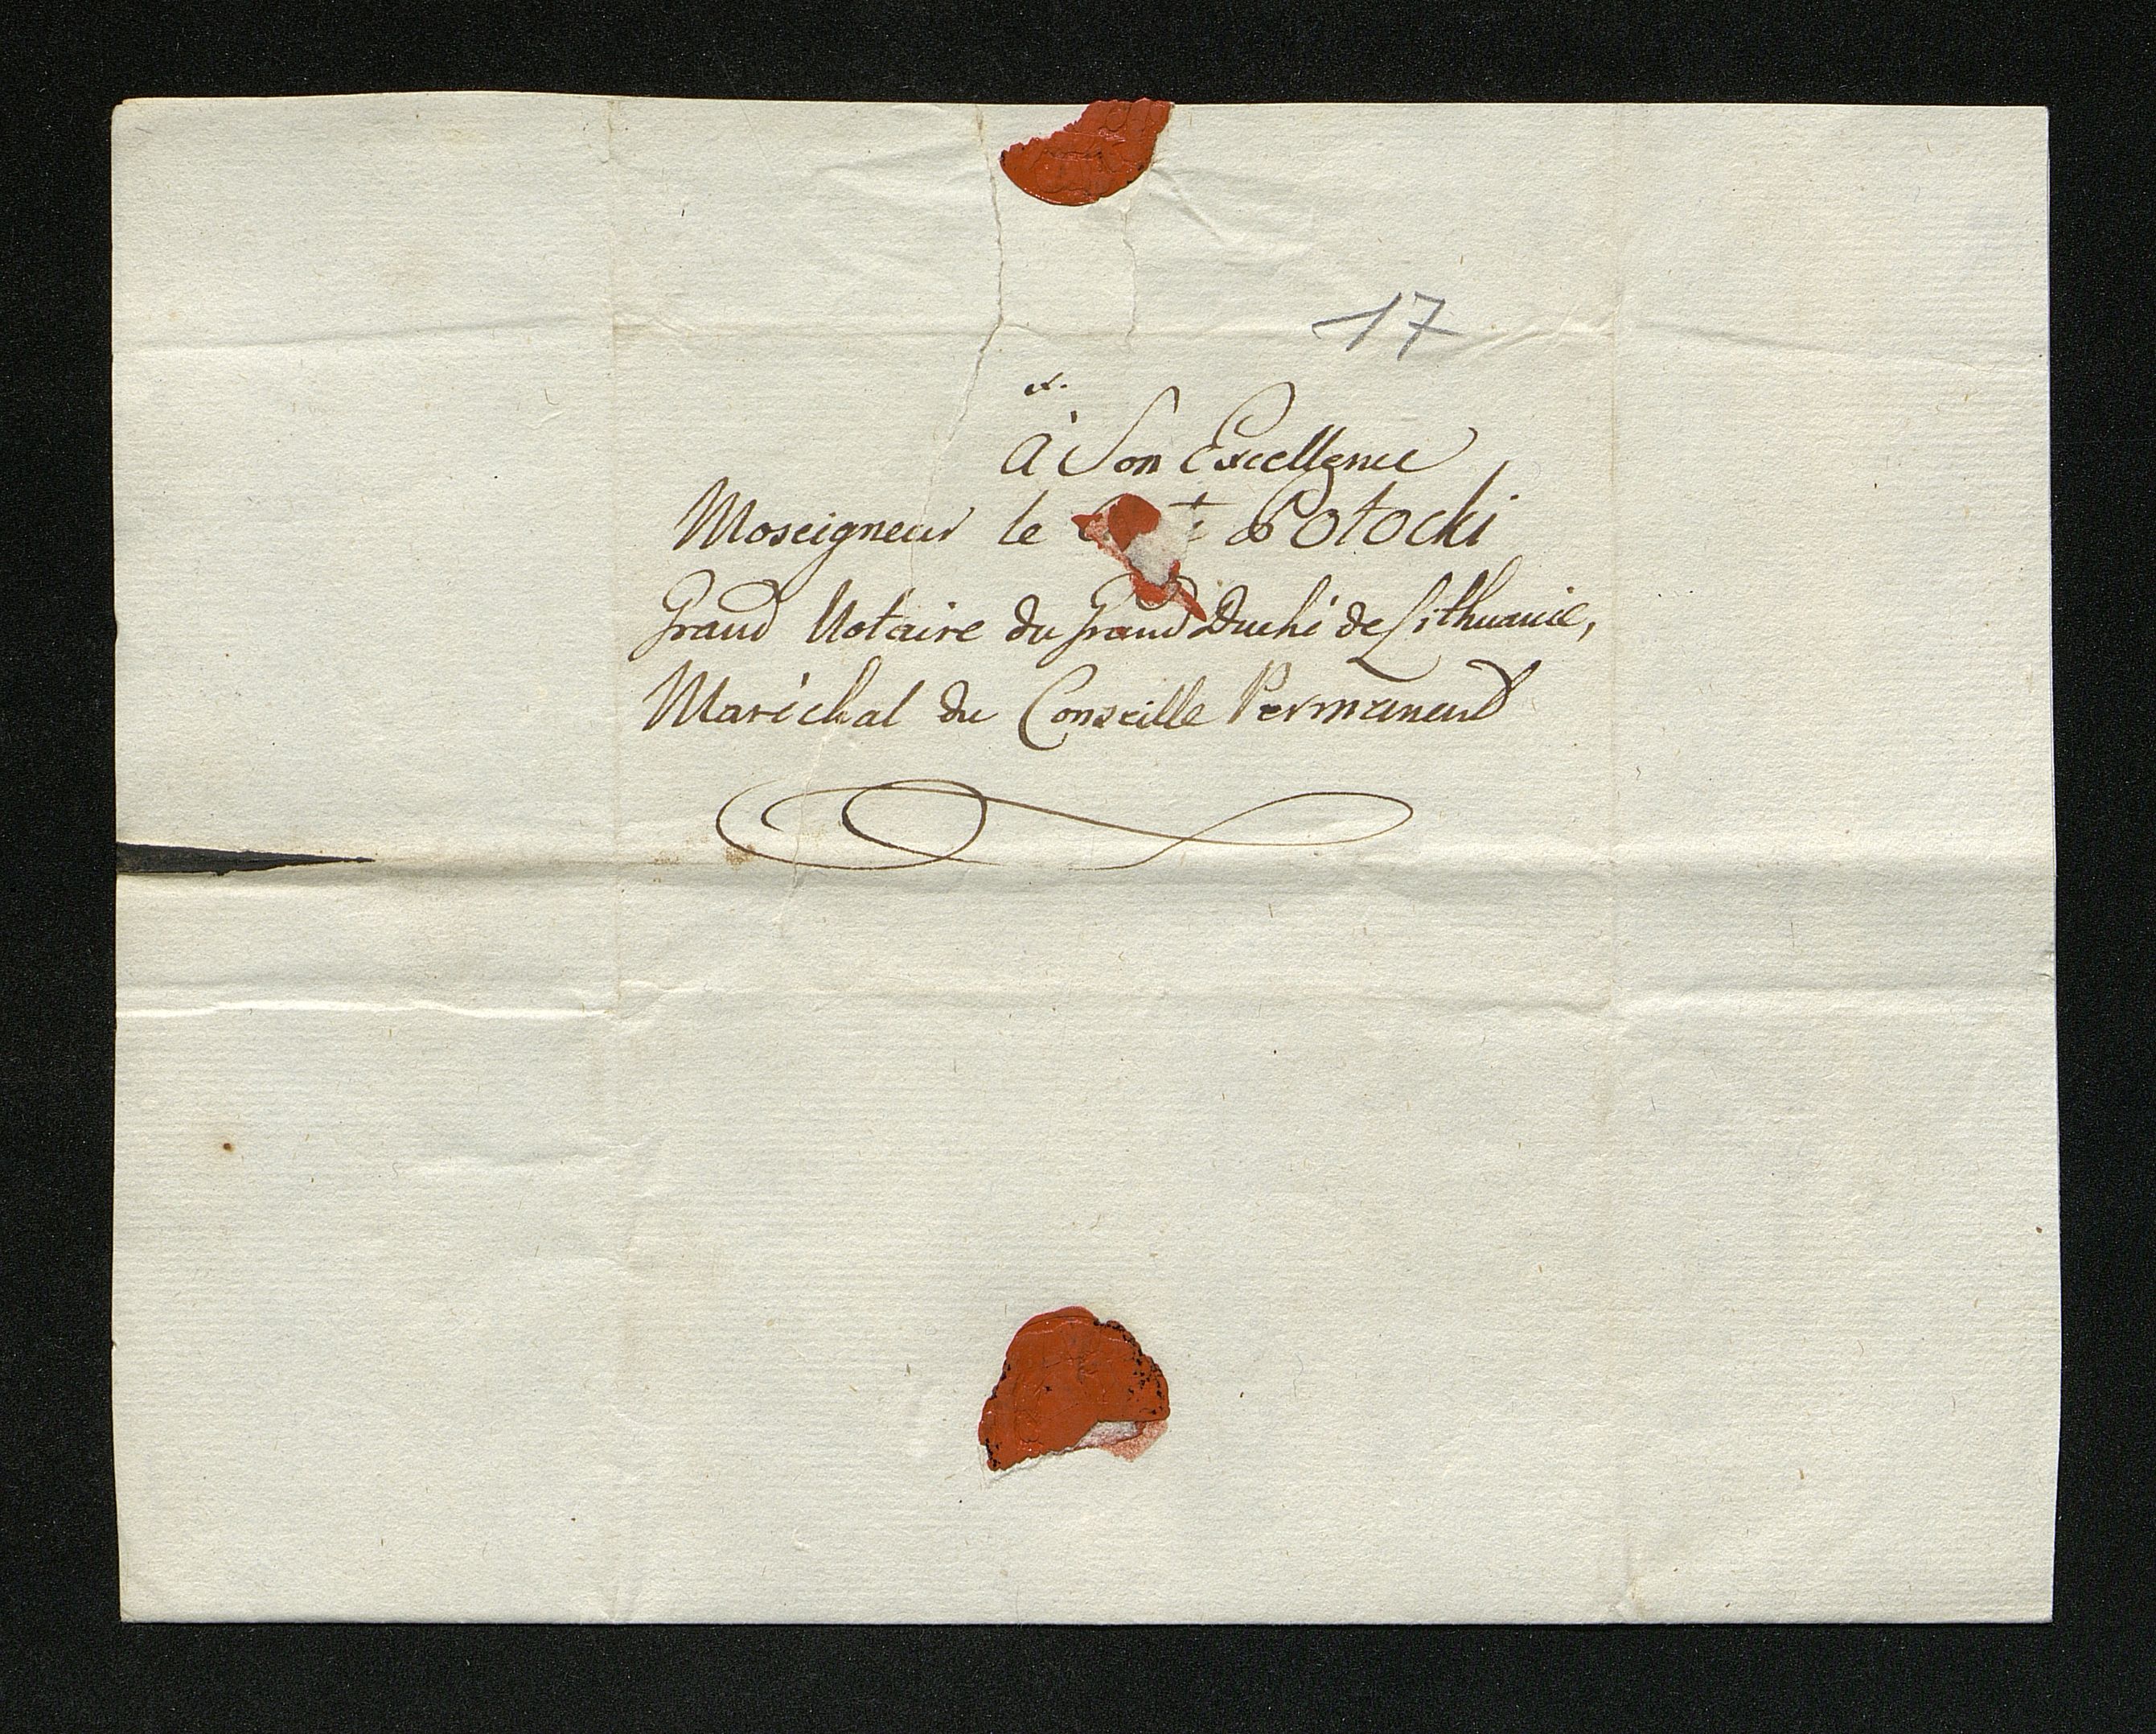 17
à Son Excellence
Moseigneur le Potocki
Grand Notaire du Grand Duché de Lithuanie,
Maréchal du Conseille Permanend